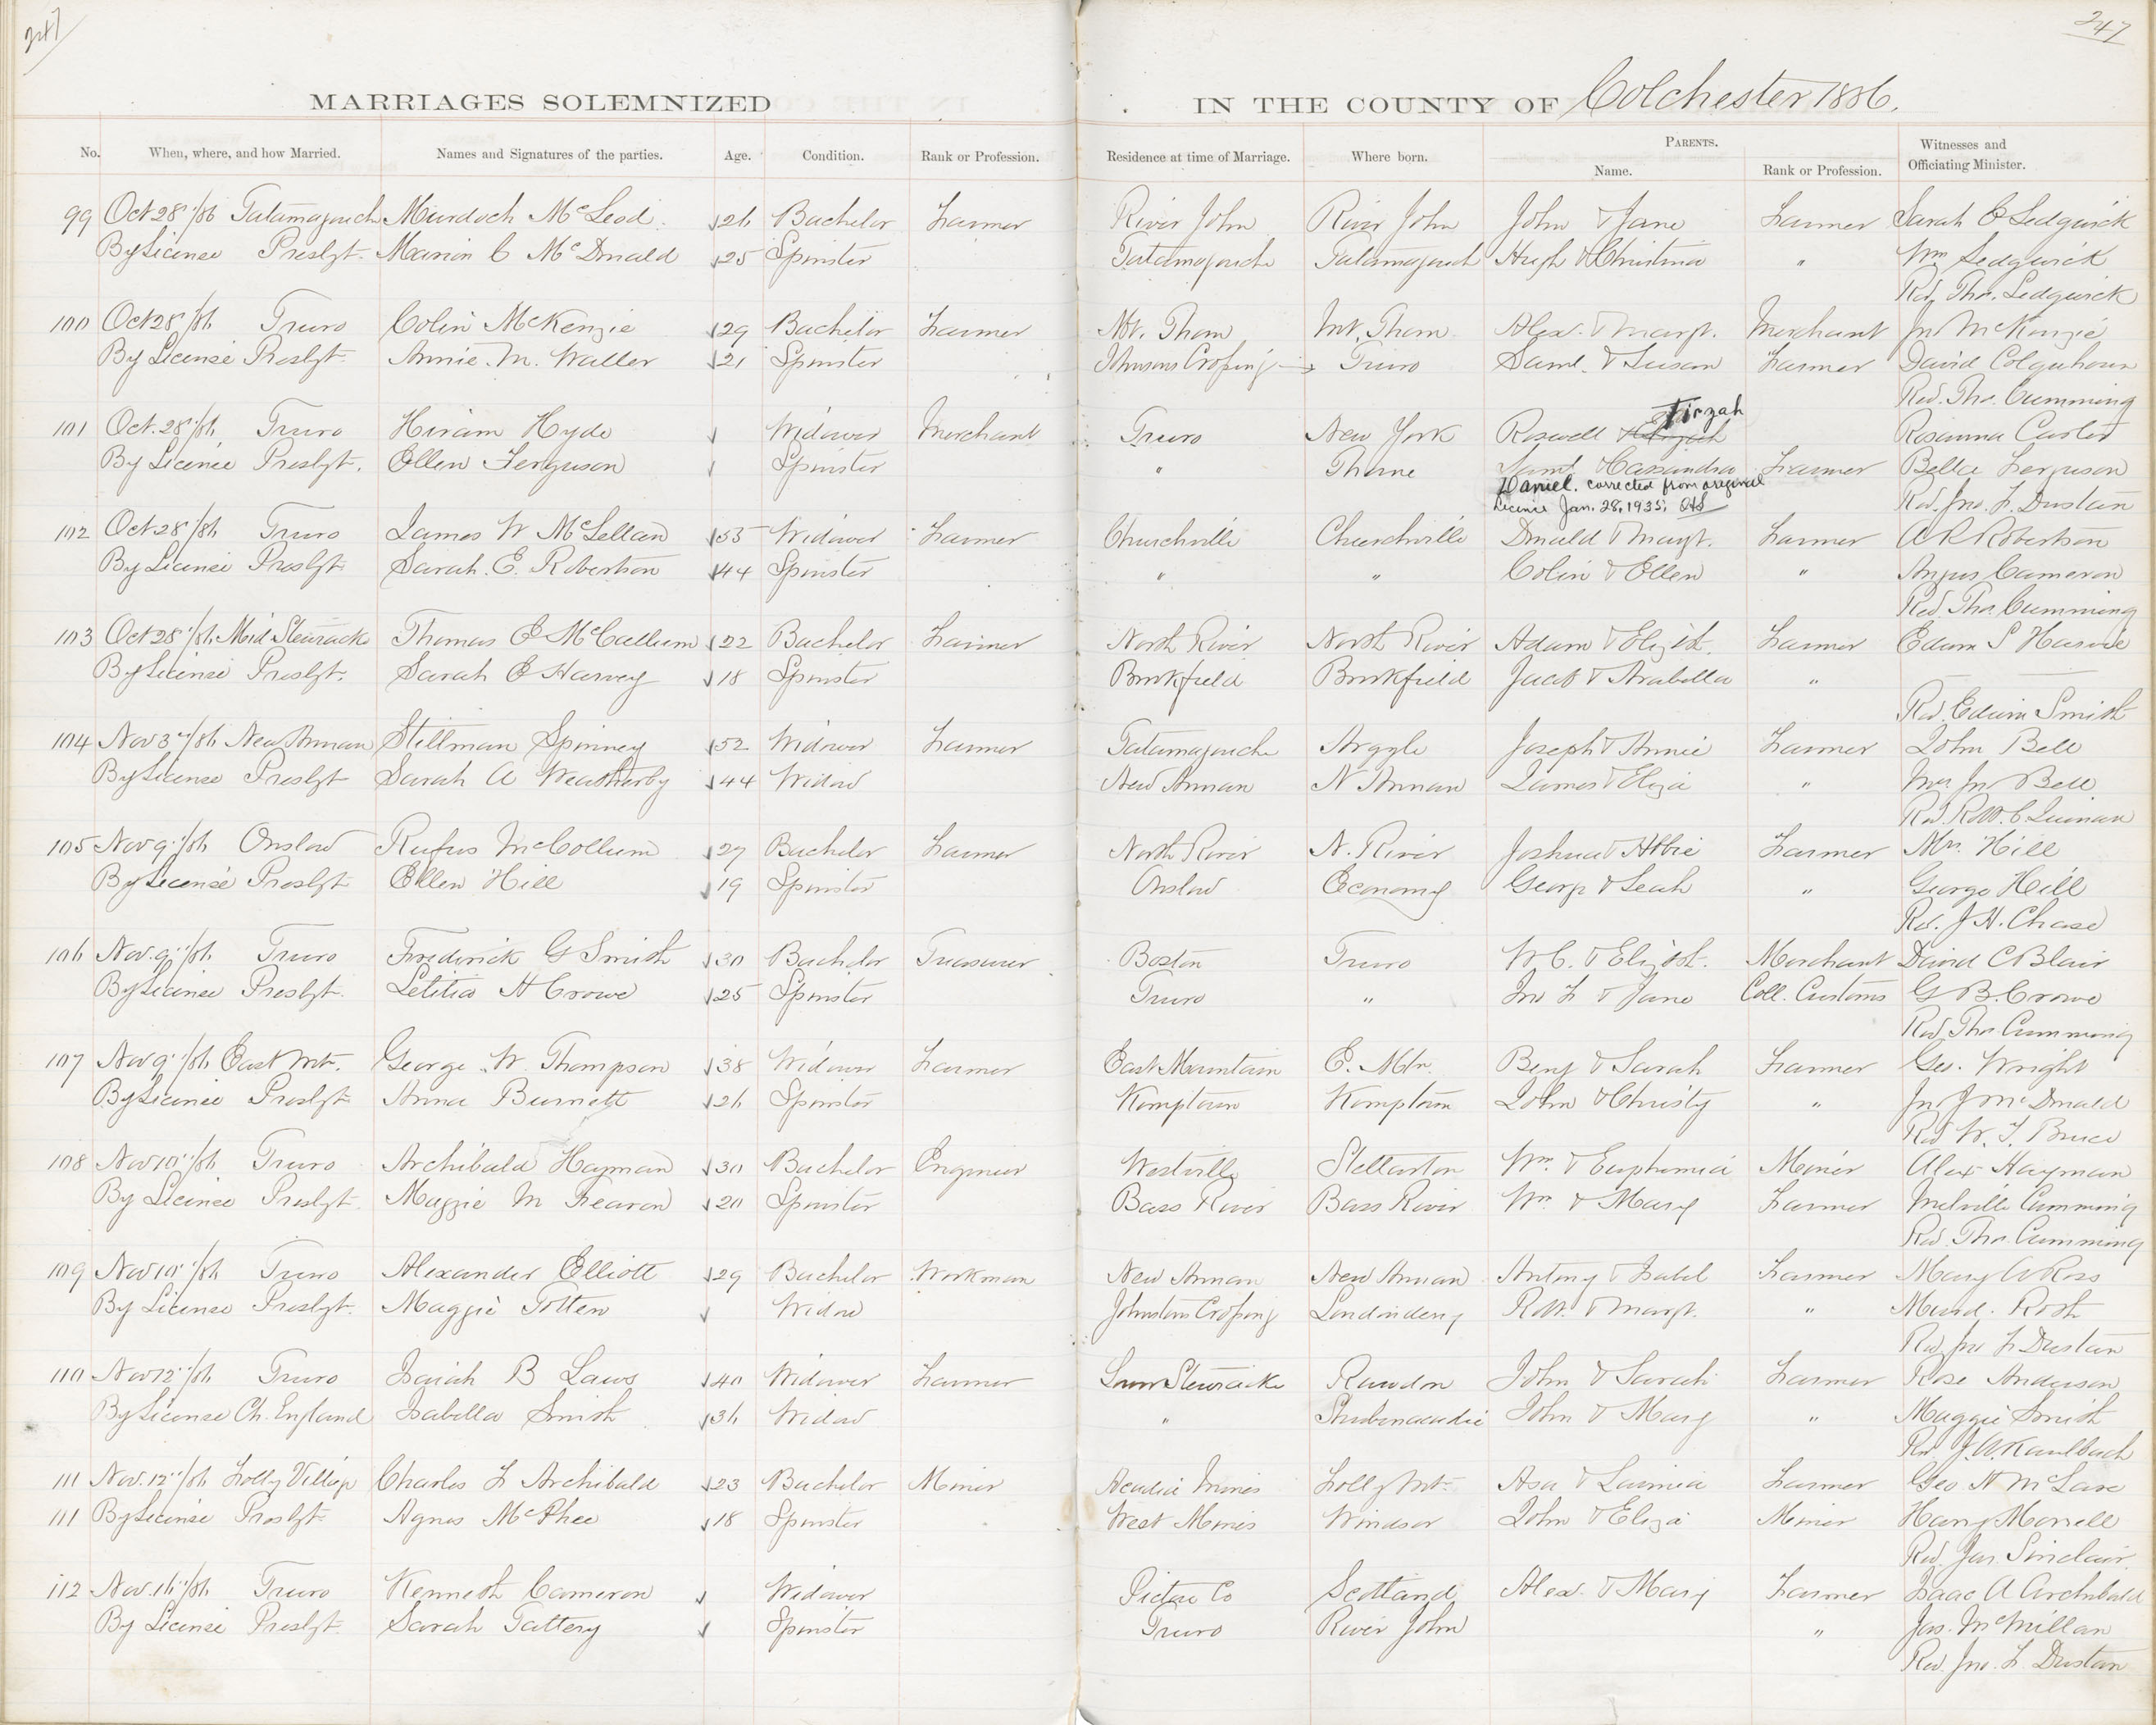 247
247
MARRIAGES SOLEMNIZED IN THE COUNTY OF Colchester 1886.
No. When, where, and how Married. Names and Signatures of the parties. Age. Condition. Rank or Profession. Residence at time of Marriage. Where born. PARENTS. Name. Rank or Profession. Witnesses and Officiating Minister.
99 Oct 28"/86 Tatamagouch Murdoch McLeod 26 Bachelor Farmer River John River John John & Jane Farmer Sarah E Sedgwick
By License Presbyt. Marion C McDonald 25 Spinster Tatamagouche Tatamagouch Hugh & Christina " Wm Sedgwick
Rev. Tho. Sedgwick
100 Oct 28/86 Truro Colin McKenzie 29 Bachelor Farmer Mt. Thom Mt. Thom Alex. & Margt. Merchant Jno McKenzie
By License Presbyt. Annie M. Waller 21 Spinster Johnsons Crossing Truro Saml. & Susan Farmer David Colquhoun
Rev. Tho. Cumming
Tirzah
101 Oct. 28"/86 Truro Hiram Hyde Widower Merchant Truro New York Roswell & Rosanna Carter
By License Presbyt. Ellen Ferguson Spinster " Thorne Saml & Cassandra Farmer Bella Ferguson
Daniel. corrected from original
Rev. Jno. F. Dustan
License Jan. 28, 1935,
102 Oct 28"/86 Truro James W McLellan 55 Widower Farmer Churchville Churchville Donald & Margt. Farmer A R Robertson
By License Presbyt. Sarah. E. Robertson 44 Spinster " " Colin & Ellen " Angus Cameron
Rev. Tho. Cumming
103 Oct 28"/86 Mid Stewiacke Thomas E McCallum 22 Bachelor Farmer North River North River Adam & Elizbt. Farmer Edwin S Harvie
By License Presbyt. Sarah E Harvey 18 Spinster Brookfield Brookfield Jacob & Arabella "
Rev. Edwin Smith
104 Nov 3"/86 New Annan Stillman Spinney 52 Widower Farmer Tatamagouche Argyle Joseph & Annie Farmer John Bell
By License Presbyt Sarah A Weatherby 44 Widow New Annan N Annan James & Eliza " Mrs Jno Bell
Rev. Robt. C Quinan
105 Nov 9"/86 Onslow Rufus McCollum 27 Bachelor Farmer North River N. River Joshua & Abbie Farmer Mrs. Hill
By License Presbyt Ellen Hill 19 Spinster Onslow Economy George & Leah " George Hill
Rev. J H. Chase
106 Nov. 9"/86 Truro Frederick G Smith 30 Bachelor Treasurer Boston Truro W C. & Elizbt. Merchant David C Blair
By License Presbyt. Letitia H Crowe 25 Spinster Truro " Jno F & Jane Coll. Customs G B. Crowe
Rev Tho Cumming
107 Nov 9"/86 East Mt. George W. Thompson 38 Widower Farmer East Mountain E. Mtn. Benj & Sarah Farmer Geo. Wright
By License Presbyt Anna Burnett 26 Spinster Kemptown Kemptown John & Christy " Jno J McDonald
Rev W. T. Bruce
108 Nov 10"/86 Truro Archibald Hayman 30 Bachelor Engineer Westville Stellarton Wm. & Euphemia Miner Alex Hayman
By License Presbyt. Maggie M Fearon 20 Spinster Bass River Bass River Wm & Mary Farmer Melville Cumming
Rev. Tho. Cumming
109 Nov 10"/86 Truro Alexander Elliott 29 Bachelor Workman New Annan New Annan Antony & Isabel Farmer Mary A Ross
By License Presbyt. Maggie Totten Widow Johnstons Crossing Londonderry Robt. & Margt. "
Rev Jno F Dustan
110 Nov 12"/86 Truro Isaiah B Laws 40 Widower Farmer Lower Stewiacke Rawdon John & Sarah Farmer Rose Anderson
By License Ch. England Isabella Smith 36 Widow " Shubenacadie John & Mary " Maggie Smith
Rev J. A. Kaulbach
111 Nov. 12"/86 Folly Village Charles F Archibald 23 Bachelor Miner Acadia Mines Folly Mt. Asa & Lavinia Farmer Geo N McLane
111 By License Presbyt Agnes McPhee 18 Spinster West Mines Windsor John & Eliza Miner Harry Morrell
Rev. Jas. Sinclair
112 Nov. 16"/86 Truro Kenneth Cameron Widower Pictou Co Scotland Alex. & Mary Farmer Isaac A Archibald
By License Presbyt. Sarah Tattery Spinster Truro River John " Jas. McMillan
Rev. Jno. F. Dustan